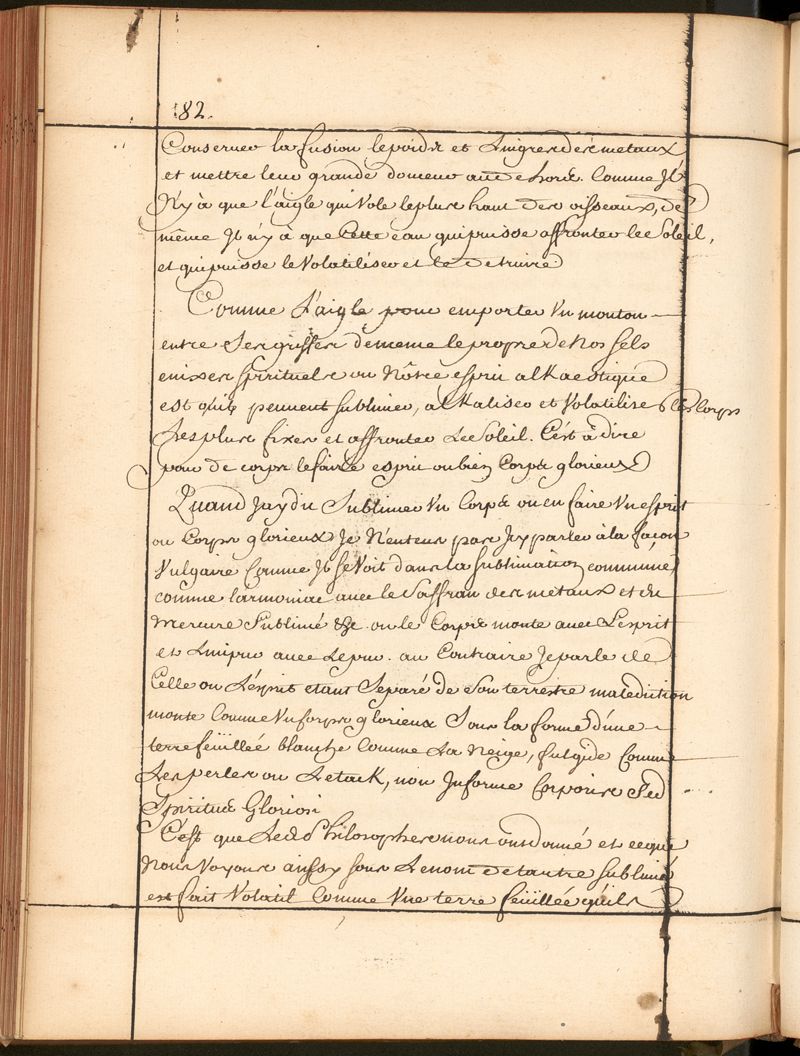 182.
Conserver la fusion le poids et Lingres des metaux
et mettre leur grande douceur au dehors. Comme Jl
N'y à que l'aigle qui Vole le plus haut des oisseaux, de
même Jl n'y à que Cette eau qui puisse affronter le Soleil,
et qui puisse le Volatiliser et le detruire
Comme L'aigle peut emporter Un mouton
entre Ses griffes de meme le propre de Nos Sels
enixes spirituels ou Nôtre esprit alKaestique
est qu'ils peuvent sublimer, alKaliser et Volatilise les Corps
Les plus fixes et affronter Le Soleil. C'est à dire
pour de corps le faire esprit ou bien Corps glorieux
Quand J'ay dit Sublimer Un Corps ou en faire Un esprit
ou Corps glorieux Je N'entens pas Jcy parler à la façon
Vulgaire Comme Jl se Voit dans la sublimation commune,
comme l'armoniac avec le Saffran des metaux et du
mercure Sublimé &c ou le Corps monte avec L'esprit
et L'impur avec Le pur. au Contraire Je parle de
Celle ou L'esprit etant Separé de Son terrestre malediction
monte Comme Un Corps glorieux Sous la forme d'une
terre feüillée blanche Comme La Neige, fulgide Comme
Les perles ou Le talk, non Jn forme Corporis Sed
Spiritus Gloriosi
C'est que Les Philosophes nous ont donné et ce que
Nous Voyons aussy sous Le nom de tartre sublimé
est fait Volatil Comme Une terre feüillée qu'ils